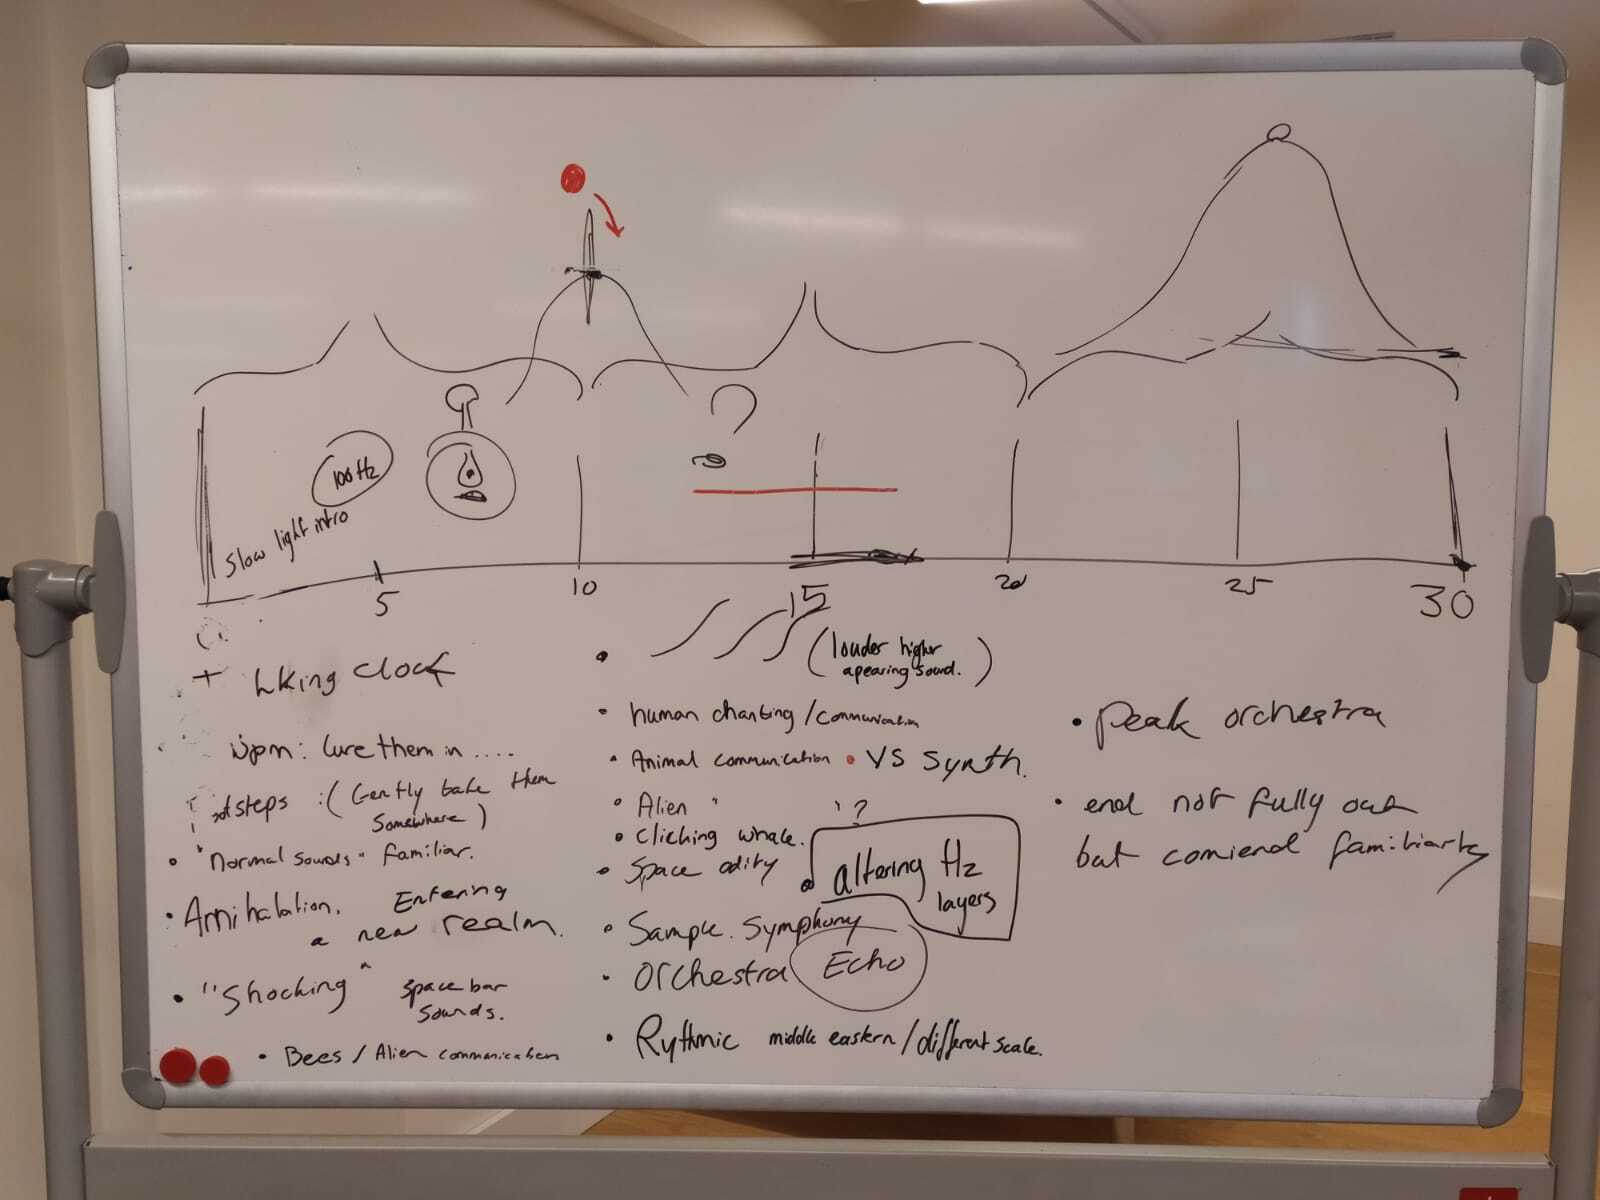 100 Hz
Slow light intro
?
0
5
10
15
20
25
30
+ clock
: Lure them in ....
steps : ( Gently take them
Somewhere )
• "Normal sounds" familiar.
• Annihalation. Entering
a new realm.
• "Shocking" space bar
sounds.
• Bees / Alien communication
• (louder higher
apearing sound.)
• human chanting / communication
• Animal communication • VS Synth.
• Alien " " ?
• Clicking whale.
• Space odity
• altering Hz
layers
• Sample. Symphony
• Orchestra Echo
• Rythmic middle eastern / different scale.
• Peak orchestra
• end not fully out
but familiarty